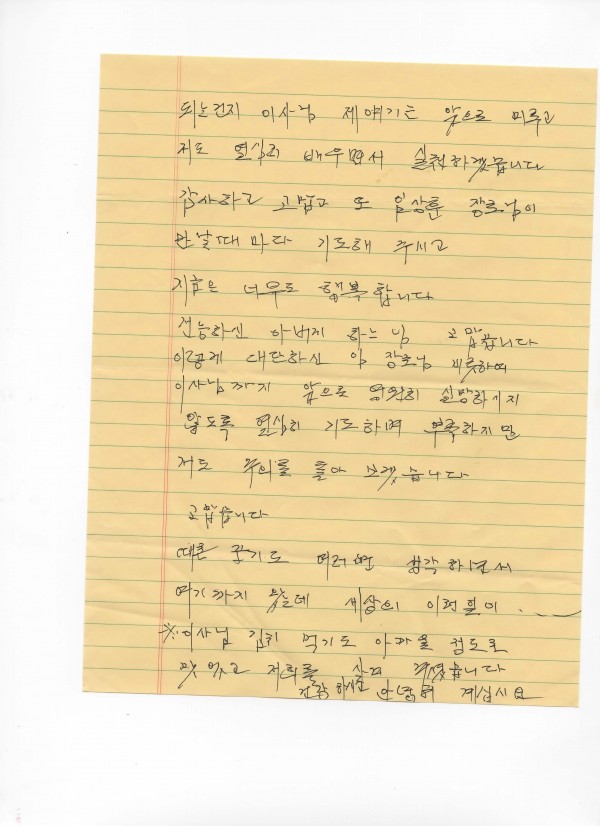 되는건지 이사님 제얘기는 앞으로 미루고
저도 열심히 배우면서 실천하겠습니다
감사하고 고맙고 또 임상훈 장로님이
만날때 마다 기도해 주시고
지금은 너무도 행복합니다
전능하신 아버지 하느님 고맙습니다
이렇게 대단하신 임 장로님 비롯하여
이사님까지 앞으로 영원히 실망하시지
않도록 열심히 기도하며 부족하지만
저도 주의를 돌아 보겠습니다
고맙습니다
때론 포기도 여러번 생각하면서
여기까지 왔는데 세상의 이런일이
※이사님 김치 먹기도 아까울 정도로
맛있고 저희를 살려 주셨습니다
건강하시고 안녕히 계십시요